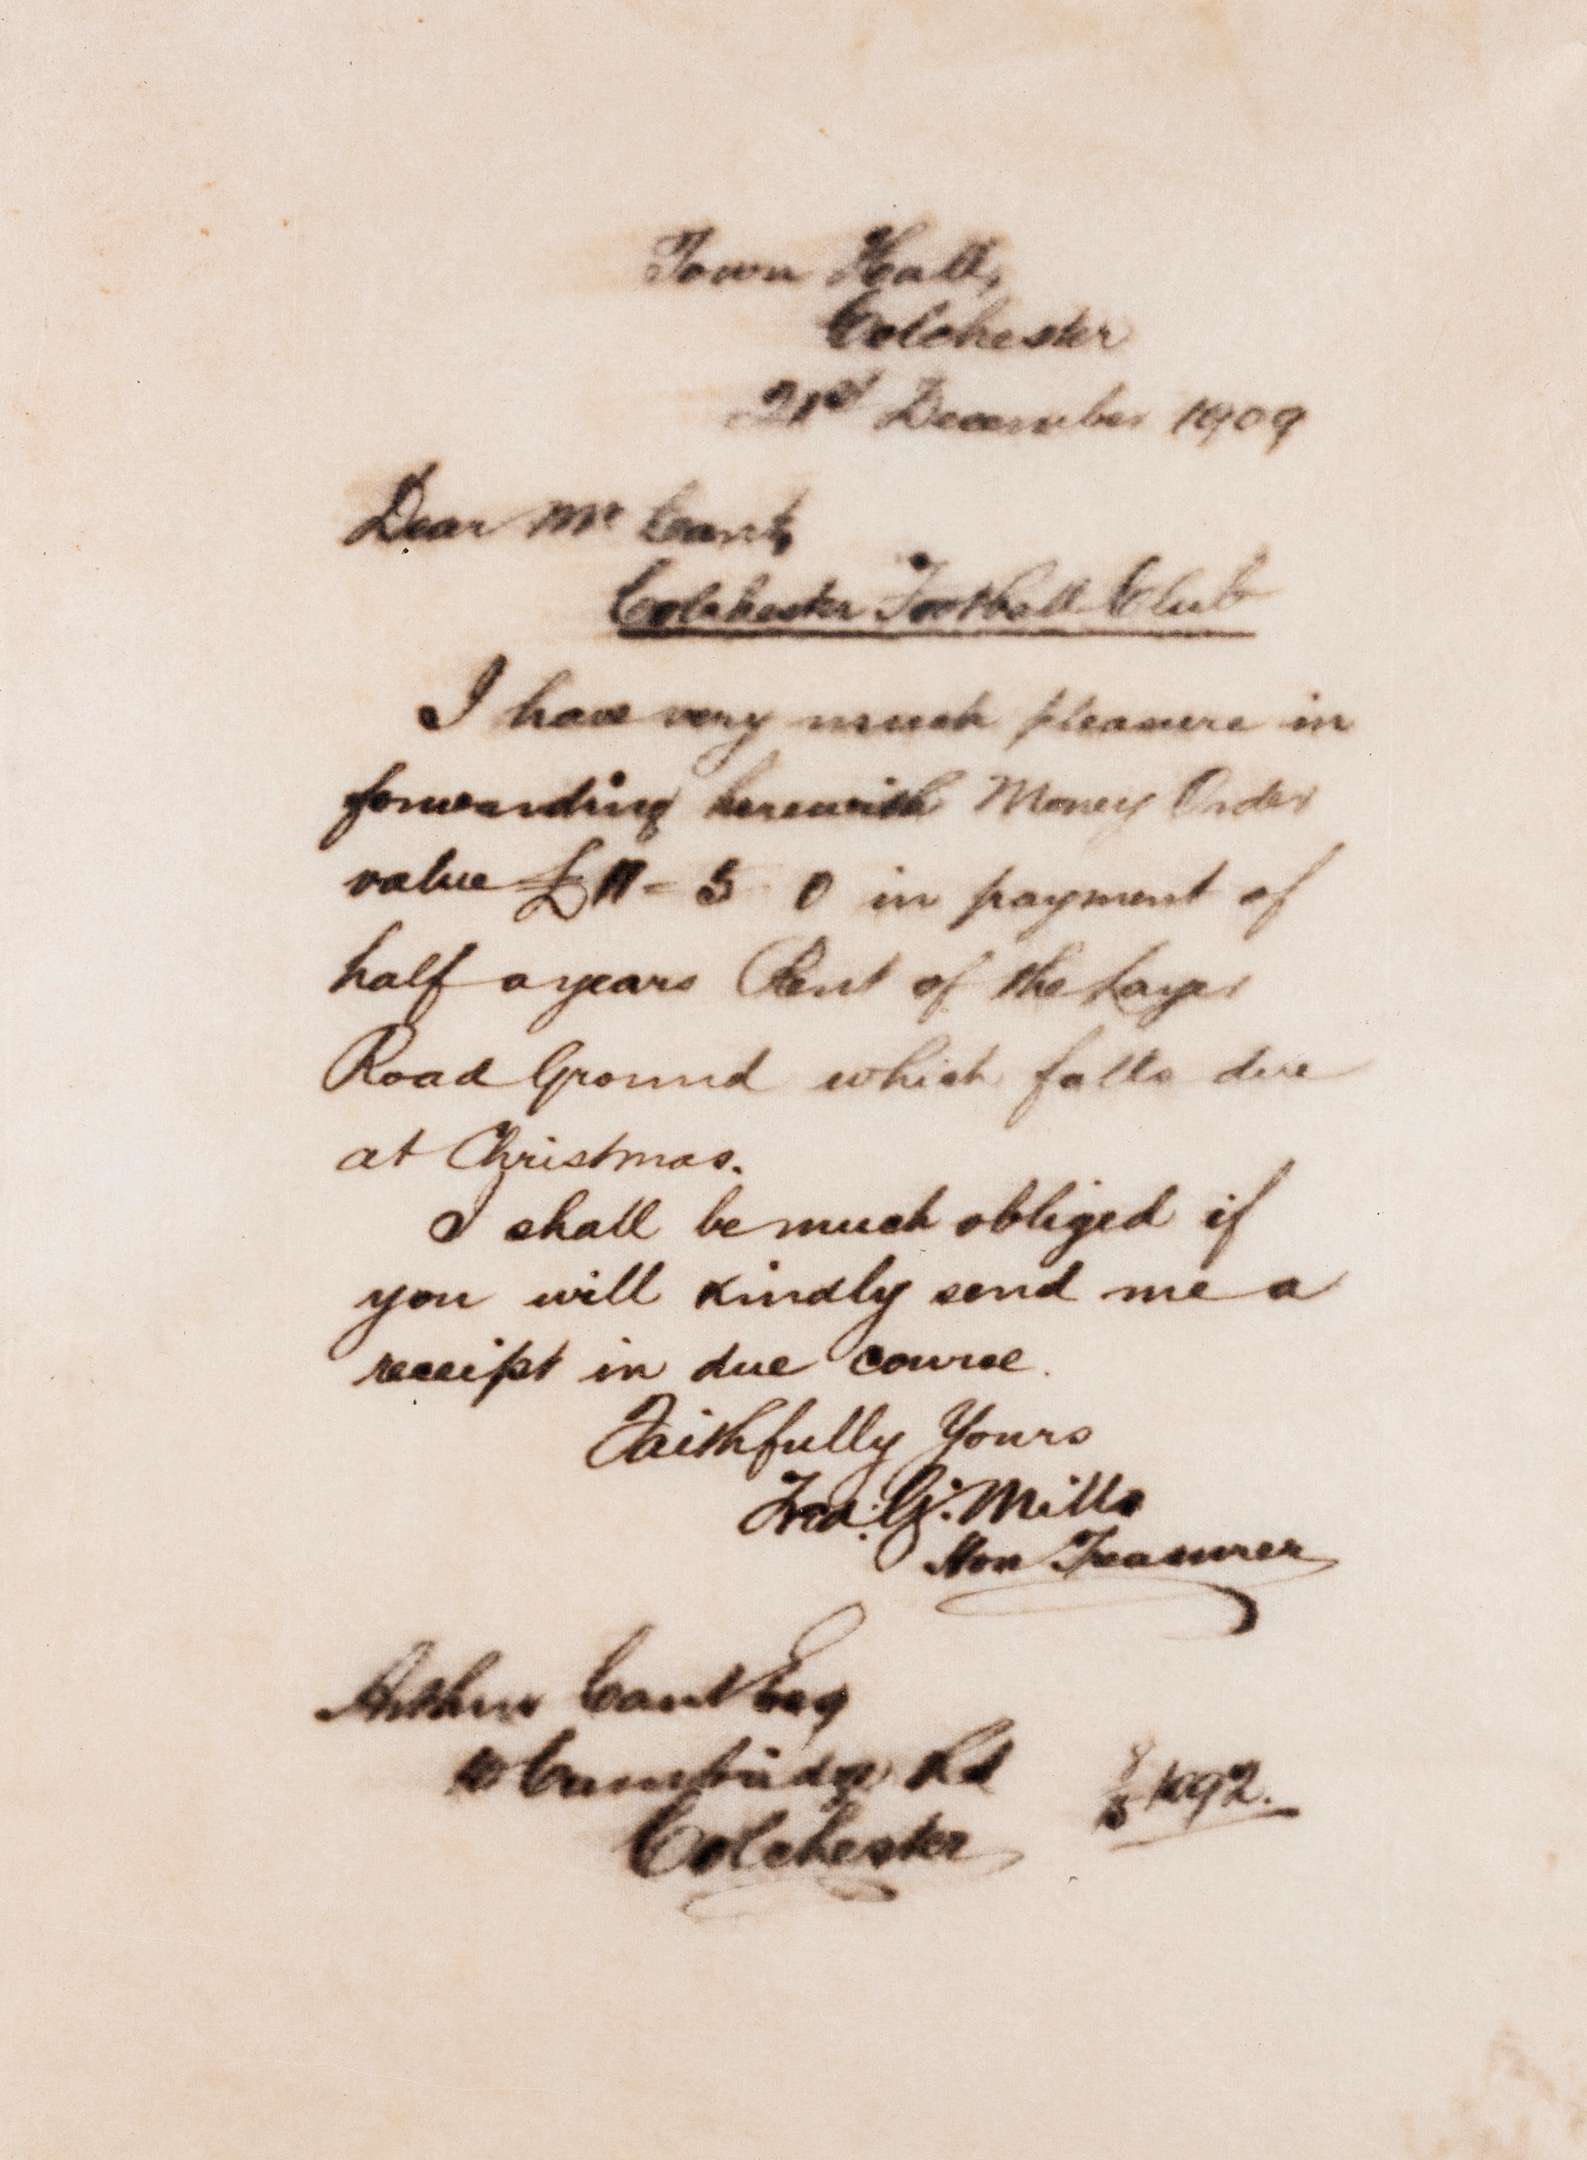 Town Hall,
Colchester
21st December 1909
Dear Mr Cant,
Colchester Football Club
I have very much pleasure in
forwarding herewith Money Order
value £11 - 5 - 0 in payment of
half a years Rent of the Layer
Road Ground which falls due
at Christmas.
I shall be much obliged if
you will kindly send me a
receipt in due course.
Faithfully Yours
Fred: G. Mills
Hon Treasurer
Arthur Cant Esq
Cambridge Rd
Colchester